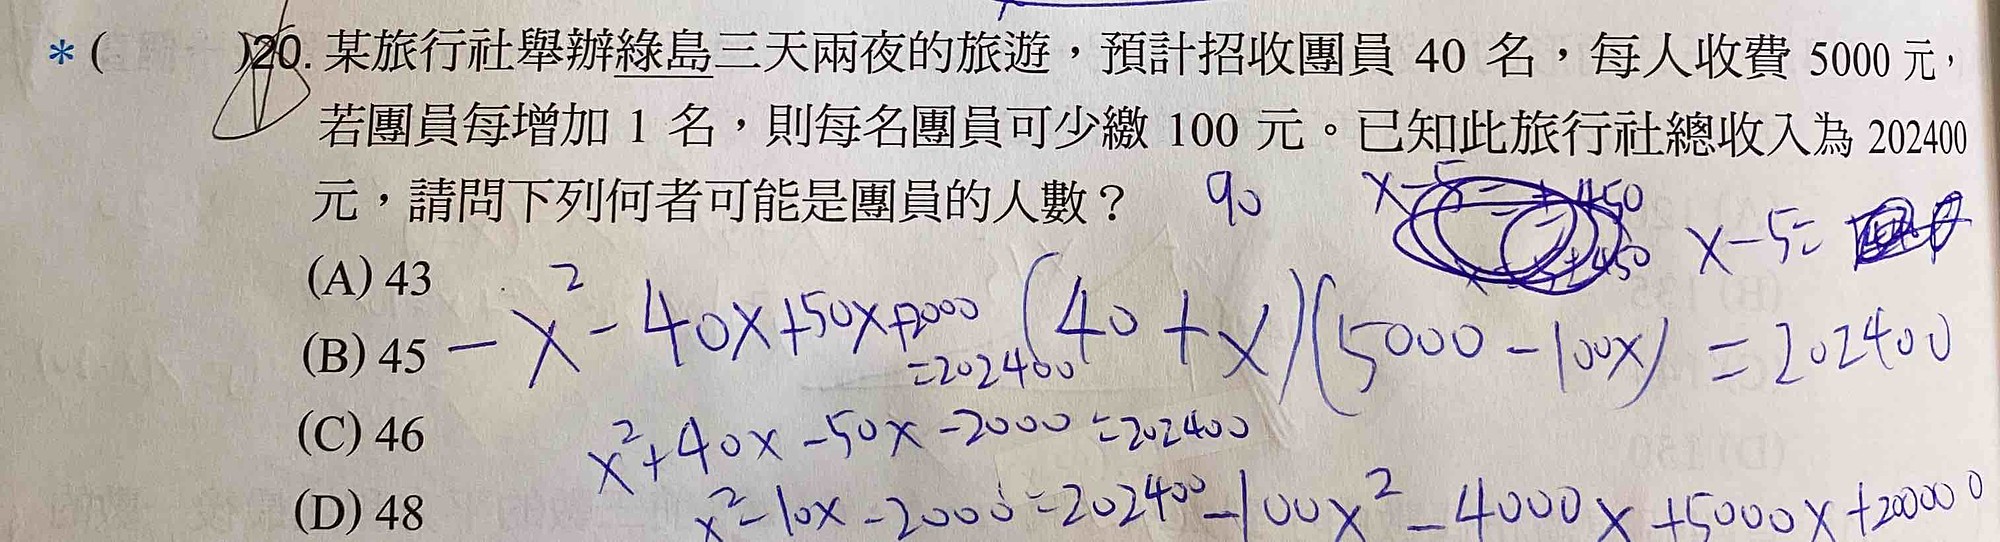 *( )20. 某旅行社舉辦綠島三天兩夜的旅遊，預計招收團員 40 名，每人收費 5000 元，
若團員每增加 1 名，則每名團員可少繳 100 元。已知此旅行社總收入為 202400
元，請問下列何者可能是團員的人數？ 90 x-5= x-5=
(A) 43
(B) 45 -x²-40x+50x+2000 =202400 (40+x)(5000-100x)=202400
(C) 46 x²+40x-50x-2000=202400
(D) 48 x²-10x-2000=202400 -100x²-4000x+5000x+200000